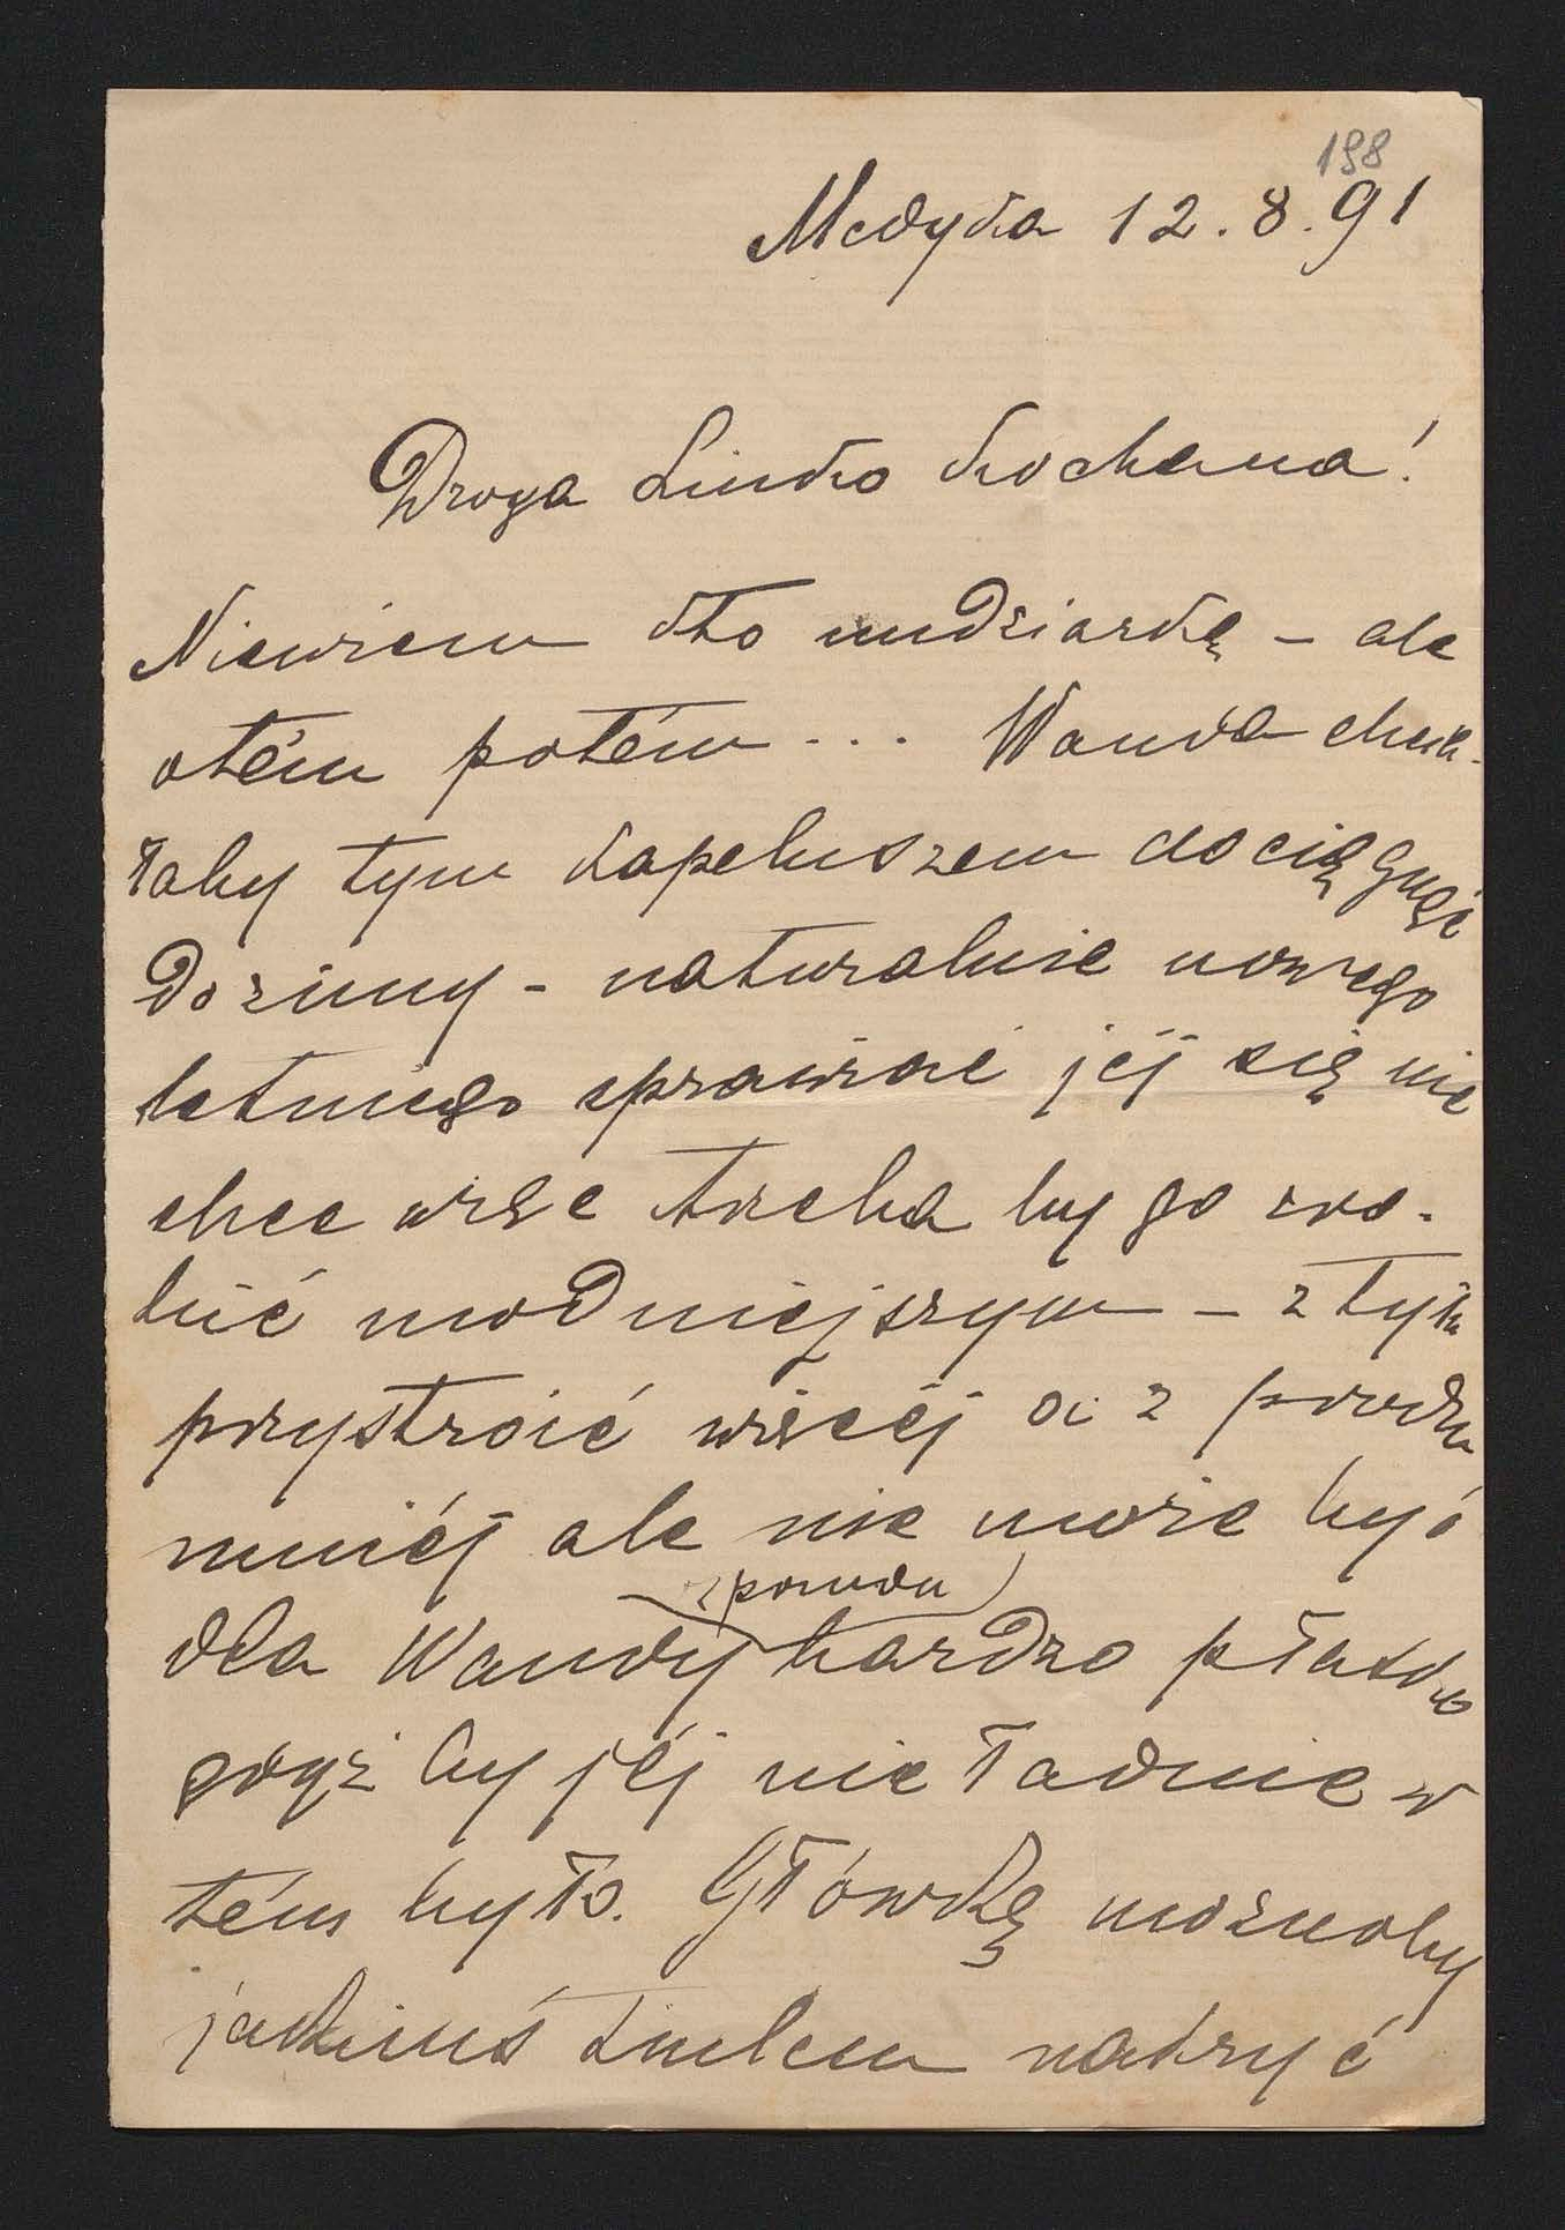 198
Medyka 12.8.91
Droga Linko kochana!
Niewiem kto nudziarką - ale
otém potém... Wanda chcia-
łaby tym kapeluszem dociągnąć
do zimy - naturalnie nowego
letniego sprawiać jéj się nie
chce więc trzeba by go zro-
bić modniejszym - z tyłu
przystroić więcéj a z przodu
mniéj ale nie może być
z przodu
dla Wandy bardzo płasko
gdyż by jéj nie ładnie w
tém było. Główkę możnaby
jakimś tiulem nakryć